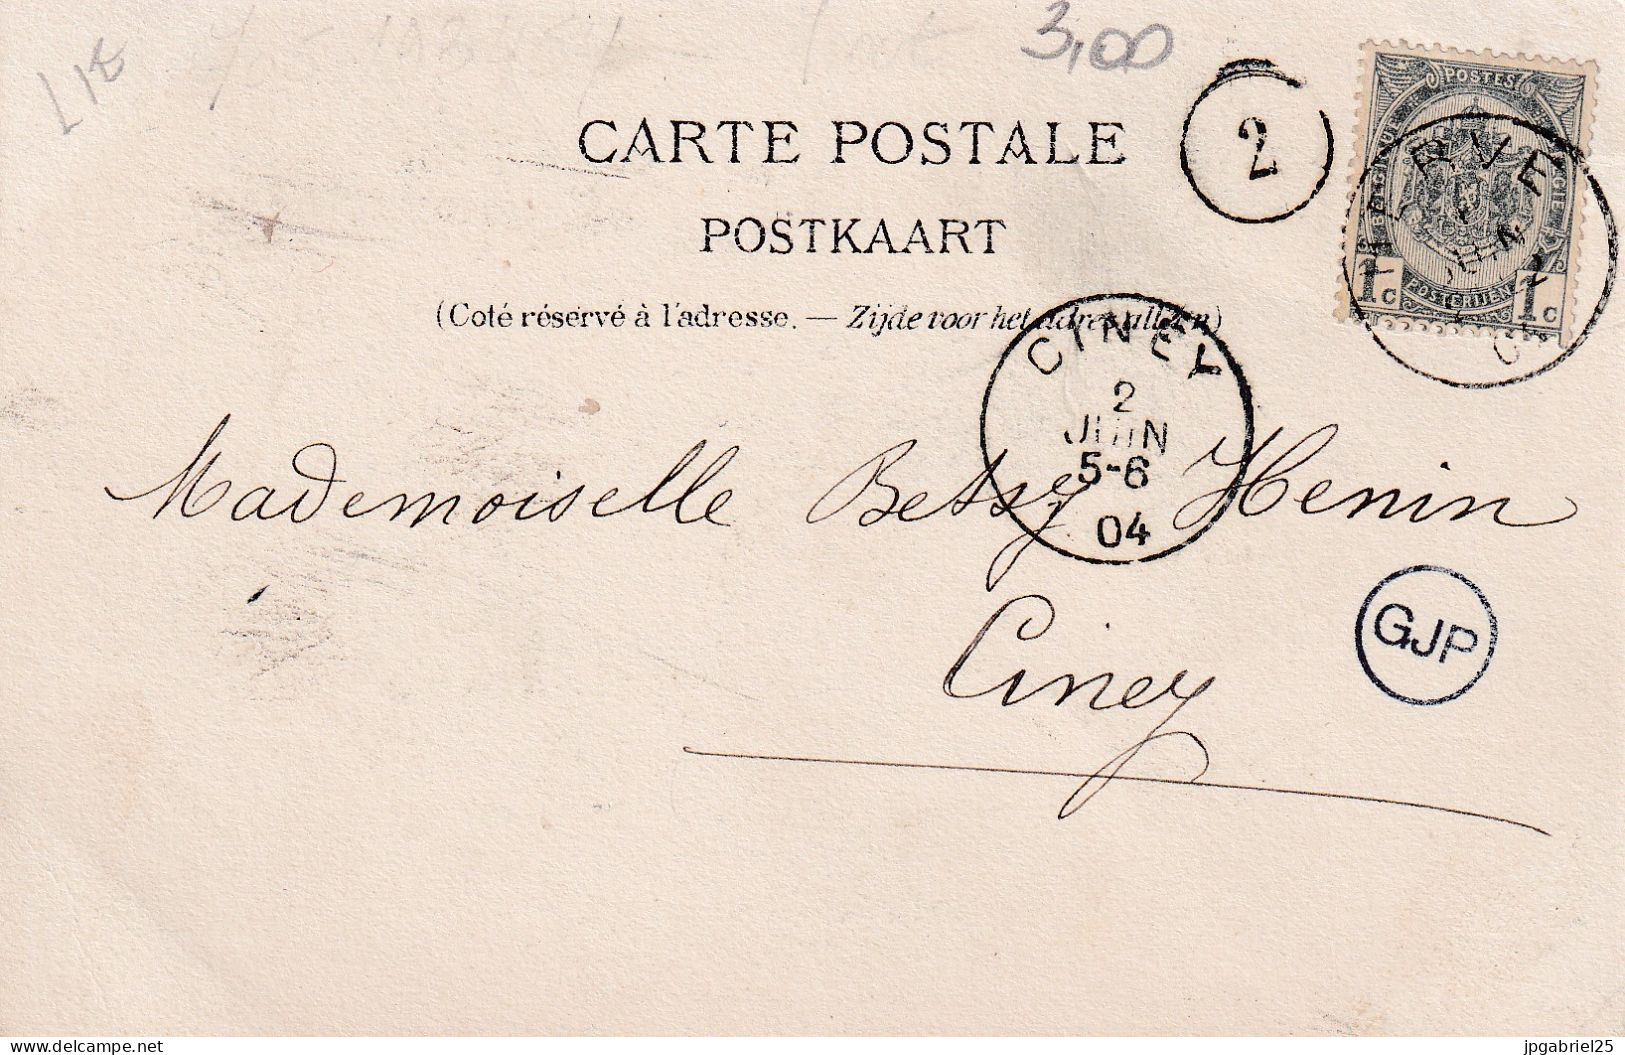 3,00
CARTE POSTALE
POSTKAART
(Coté réservé à l'adresse. — Zijde voor het adres alleen)
2
POSTES
BELGIQUE
POSTERIJEN
1c 1c
HERVE
JUIN
CINEY
2
JUIN
5-6
04
Mademoiselle Betsy Henin
Ciney
GJP
delcampe.net
jpgabriel25